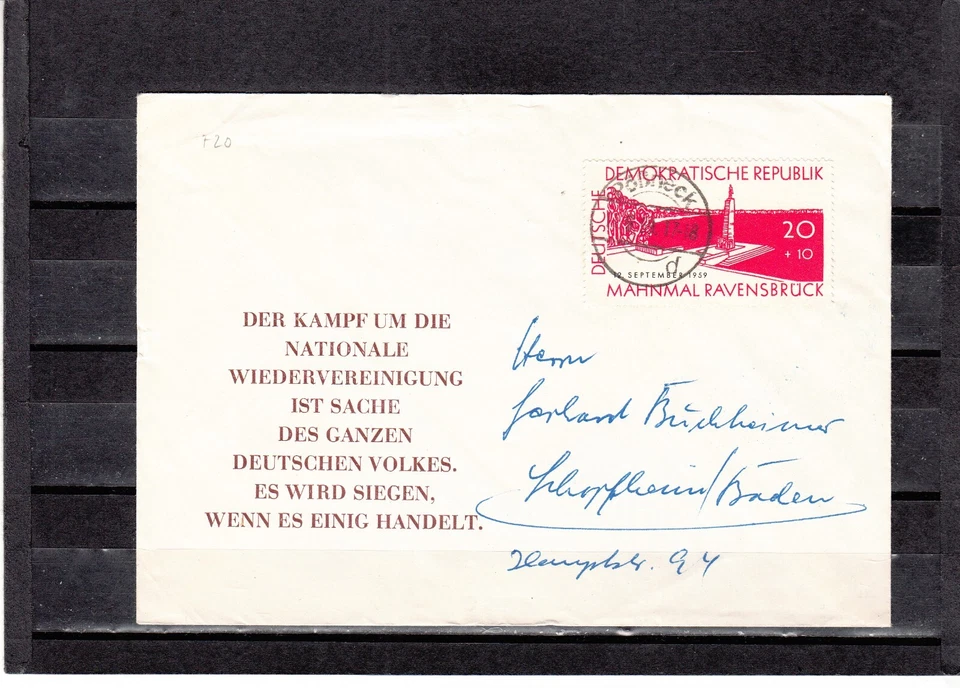 720
DEUTSCHE
DEMOKRATISCHE REPUBLIK
Pößneck
18
d
20
+ 10
12. SEPTEMBER 1959
MAHNMAL RAVENSBRÜCK
DER KAMPF UM DIE
NATIONALE
WIEDERVEREINIGUNG
IST SACHE
DES GANZEN
DEUTSCHEN VOLKES.
ES WIRD SIEGEN,
WENN ES EINIG HANDELT.
Herrn
Gerhard Büchheimer
Schopfheim/Baden
Hauptstr. 94